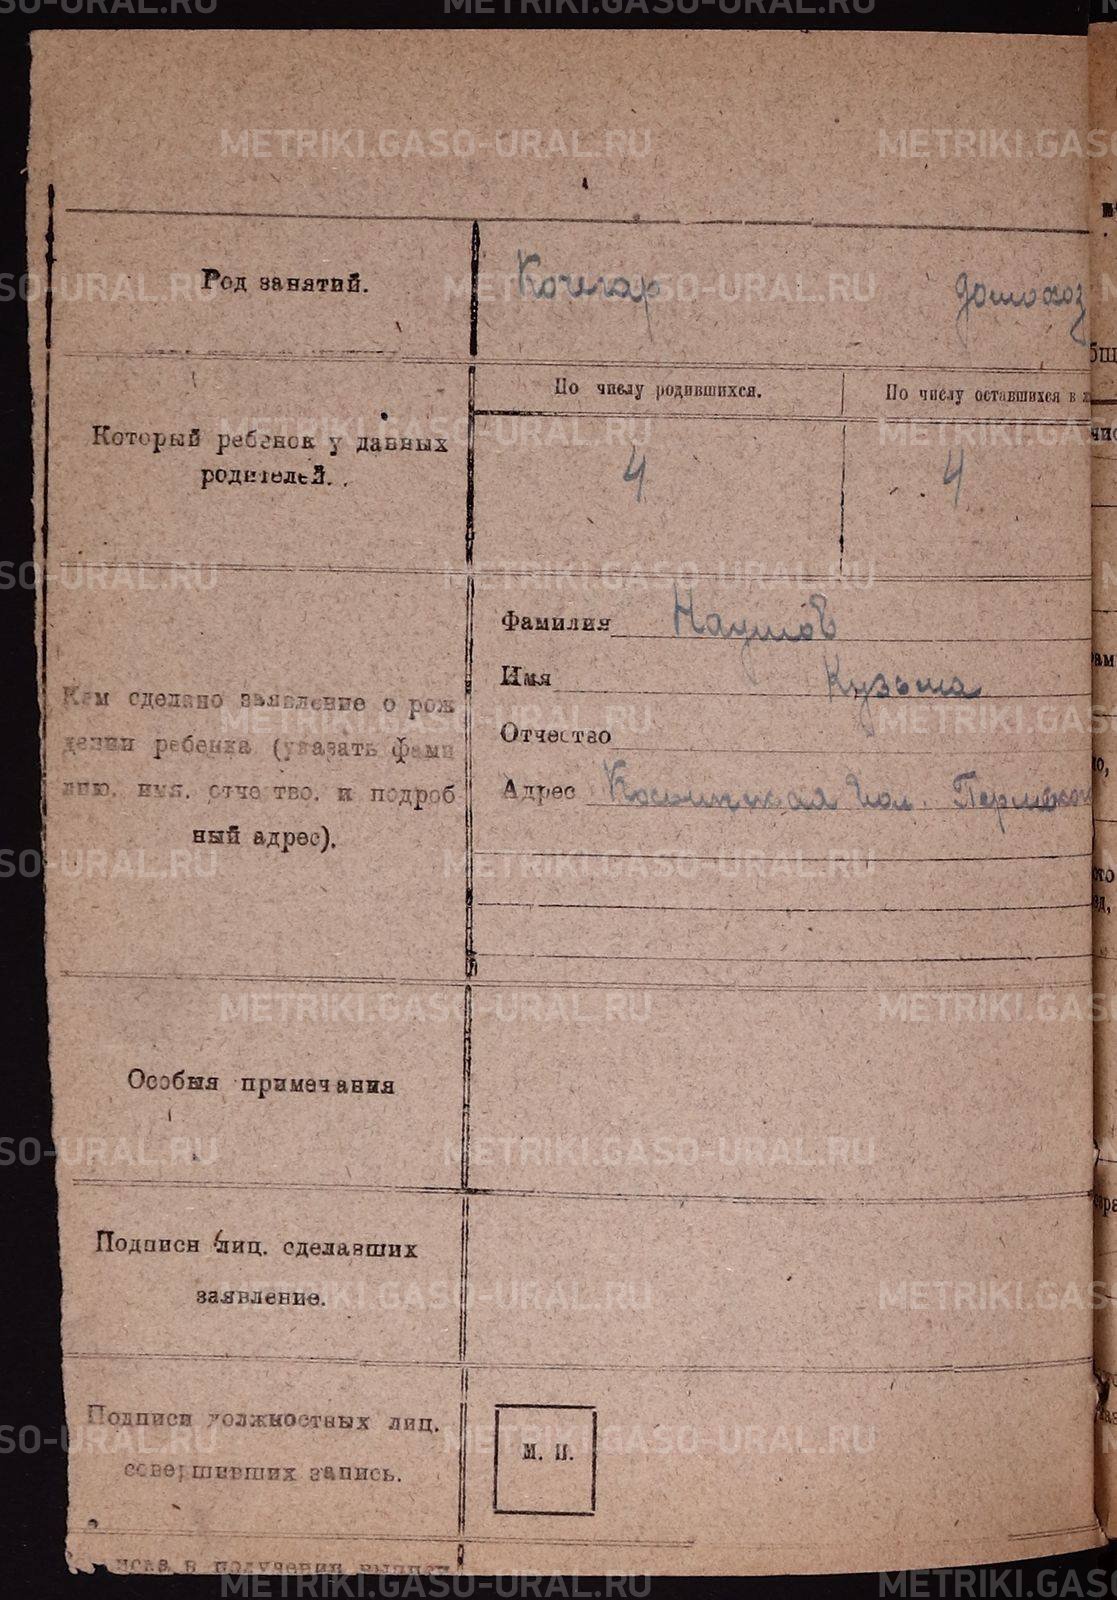 Род занятий.
Кочегар домохоз
По числу родившихся. По числу оставшихся в
Который ребенок у данных
родителей.
4 4
Фамилия Наумов
Имя Кузьма
Отчество
Адрес
Кем сделано заявление о рож
дении ребенка (указать фами
лию, имя, отчество, и подроб
ный адрес).
Особыя примечания
Подписи лиц. сделавших
заявление.
Подписи должностных лиц.
совершивших запись.
М. П.
в получении выписи
METRIKI.GASO-URAL.RU